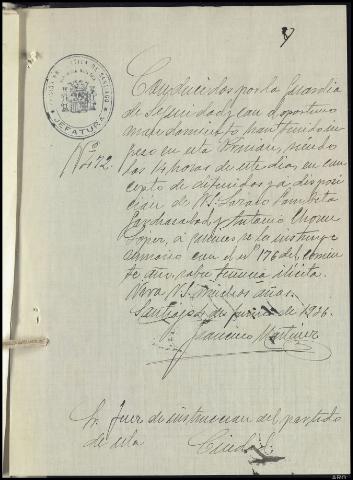 PRISIÓN DE SANTIAGO
JEFATURA
Nº 472.
Conducidos por la Guardia
de Seguridad y con oportuno
mandamiento, han tenido in-
greso en esta Prisión, siendo
las 14 horas de este día, en con-
cepto de detenidos y a disposi-
ción de V.S.
y Antonio
López, a quienes se les instruye
sumario con el nº 176 del corrien-
te año, sobre tenencia ilícita.
Viva V.S. muchos años.
Santiago de de 1936.
Francisco Martínez
Sr. Juez de instrucción del partido
de esta Ciudad.